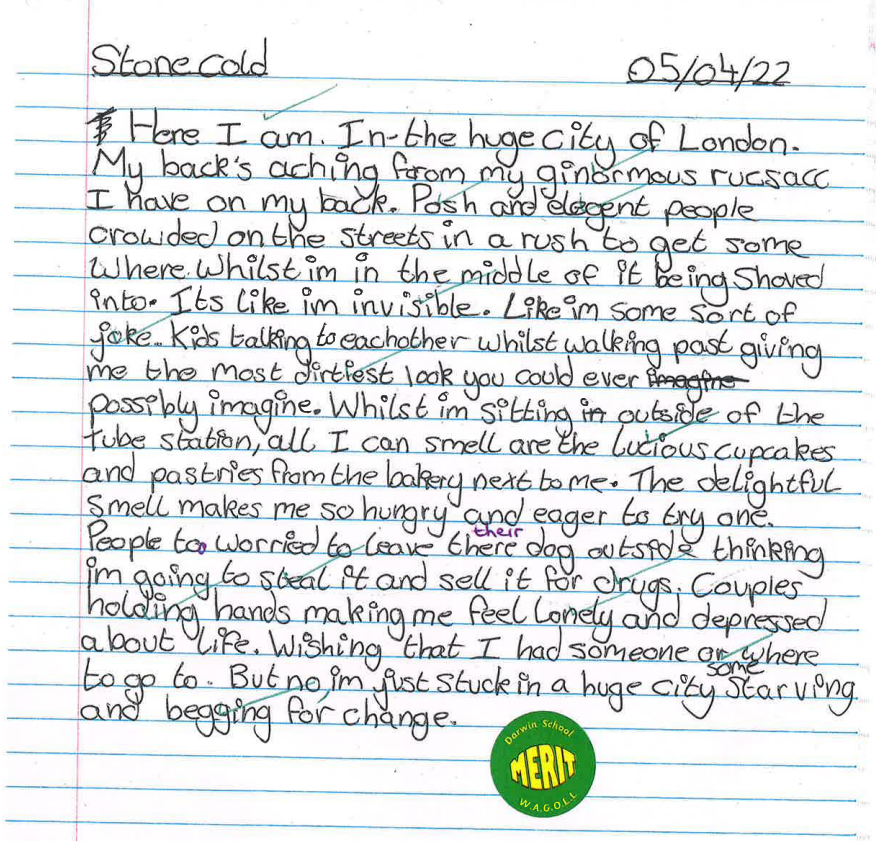 Stone cold 05/04/22
Here I am. In the huge city of London.
My back's aching farom my ginormous rucsacc
I have on my back. Posh and elegent people
crowded on the streets in a rush to get some
where. Whilst im in the middle of it being shoved
into. Its like im invisible. Like im some sort of
joke.. Kids talking to eachother whilst walking past giving
me the most dirtiest look you could ever imagine
possibly imagine. Whilst im sitting in outside of the
tube station, all I can smell are the lucious cupcakes
and pastries from the bakery next to me. The delightful
smell makes me so hungry and eager to try one.
their
People too worried to leave there dog outside thinking
im going to steal it and sell it for drugs. Couples
holding hands making me feel lonely and depressed
about life. Wishing that I had someone or where
some
to go to. But no, im just stuck in a huge city starving
and begging for change.
Darwin School
MERIT
W.A.G.O.L.L